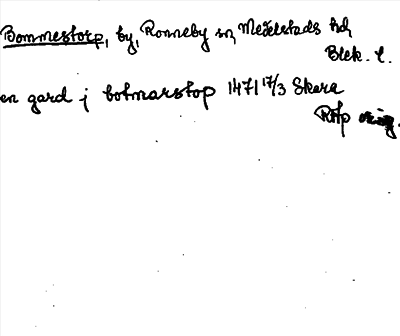 Bommestorp, by, Ronneby sn, Medelstads hd,
Blek. l.
en gard j botmarstop 1471 17/3 Skara
RAp orig.